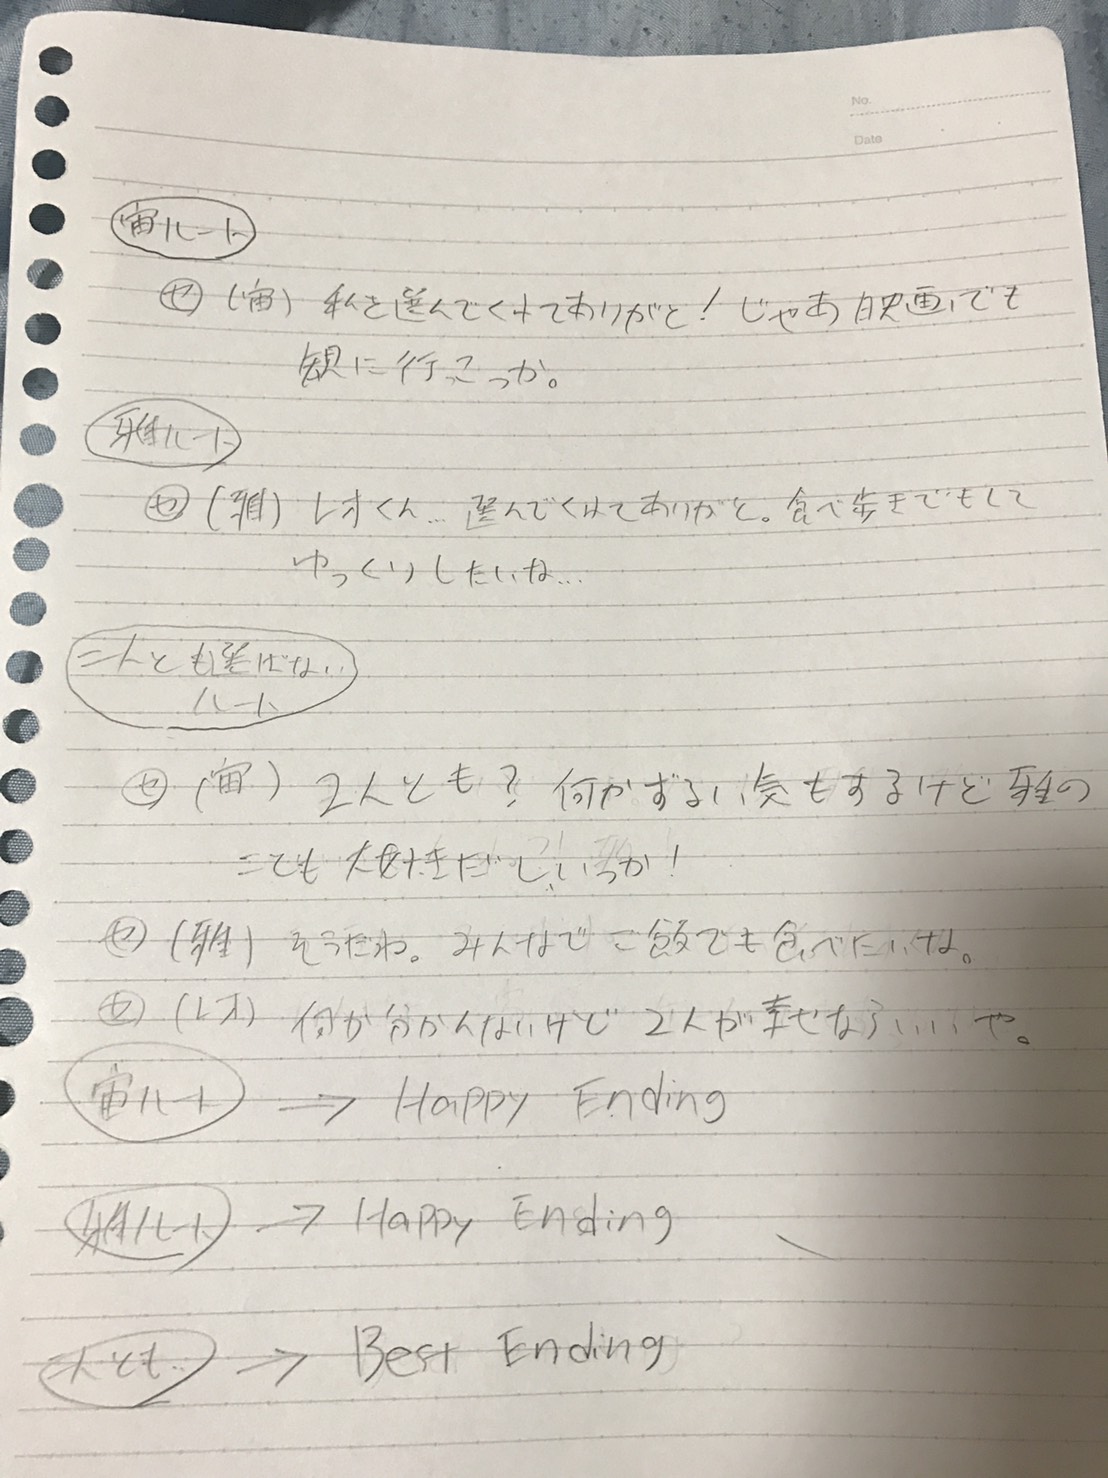 No.
Date
宙ルート
セ (宙) 私を選んでくれてありがと！じゃあ映画でも
観に行こっか。
雅ルート
セ (雅) レオくん… 選んでくれてありがと。食べ歩きでもして
ゆっくりしたいな…
二人とも選ばない
ルート
セ (宙) 2人とも？何かずるい気もするけど雅の
ことも大好きだしいっか！
セ (雅) そうだね。みんなでご飯でも食べたいな。
セ (レオ) 何か分かんないけど2人が幸せならいいや。
宙ルート → Happy Ending
雅ルート → Happy Ending
二人とも… → Best Ending